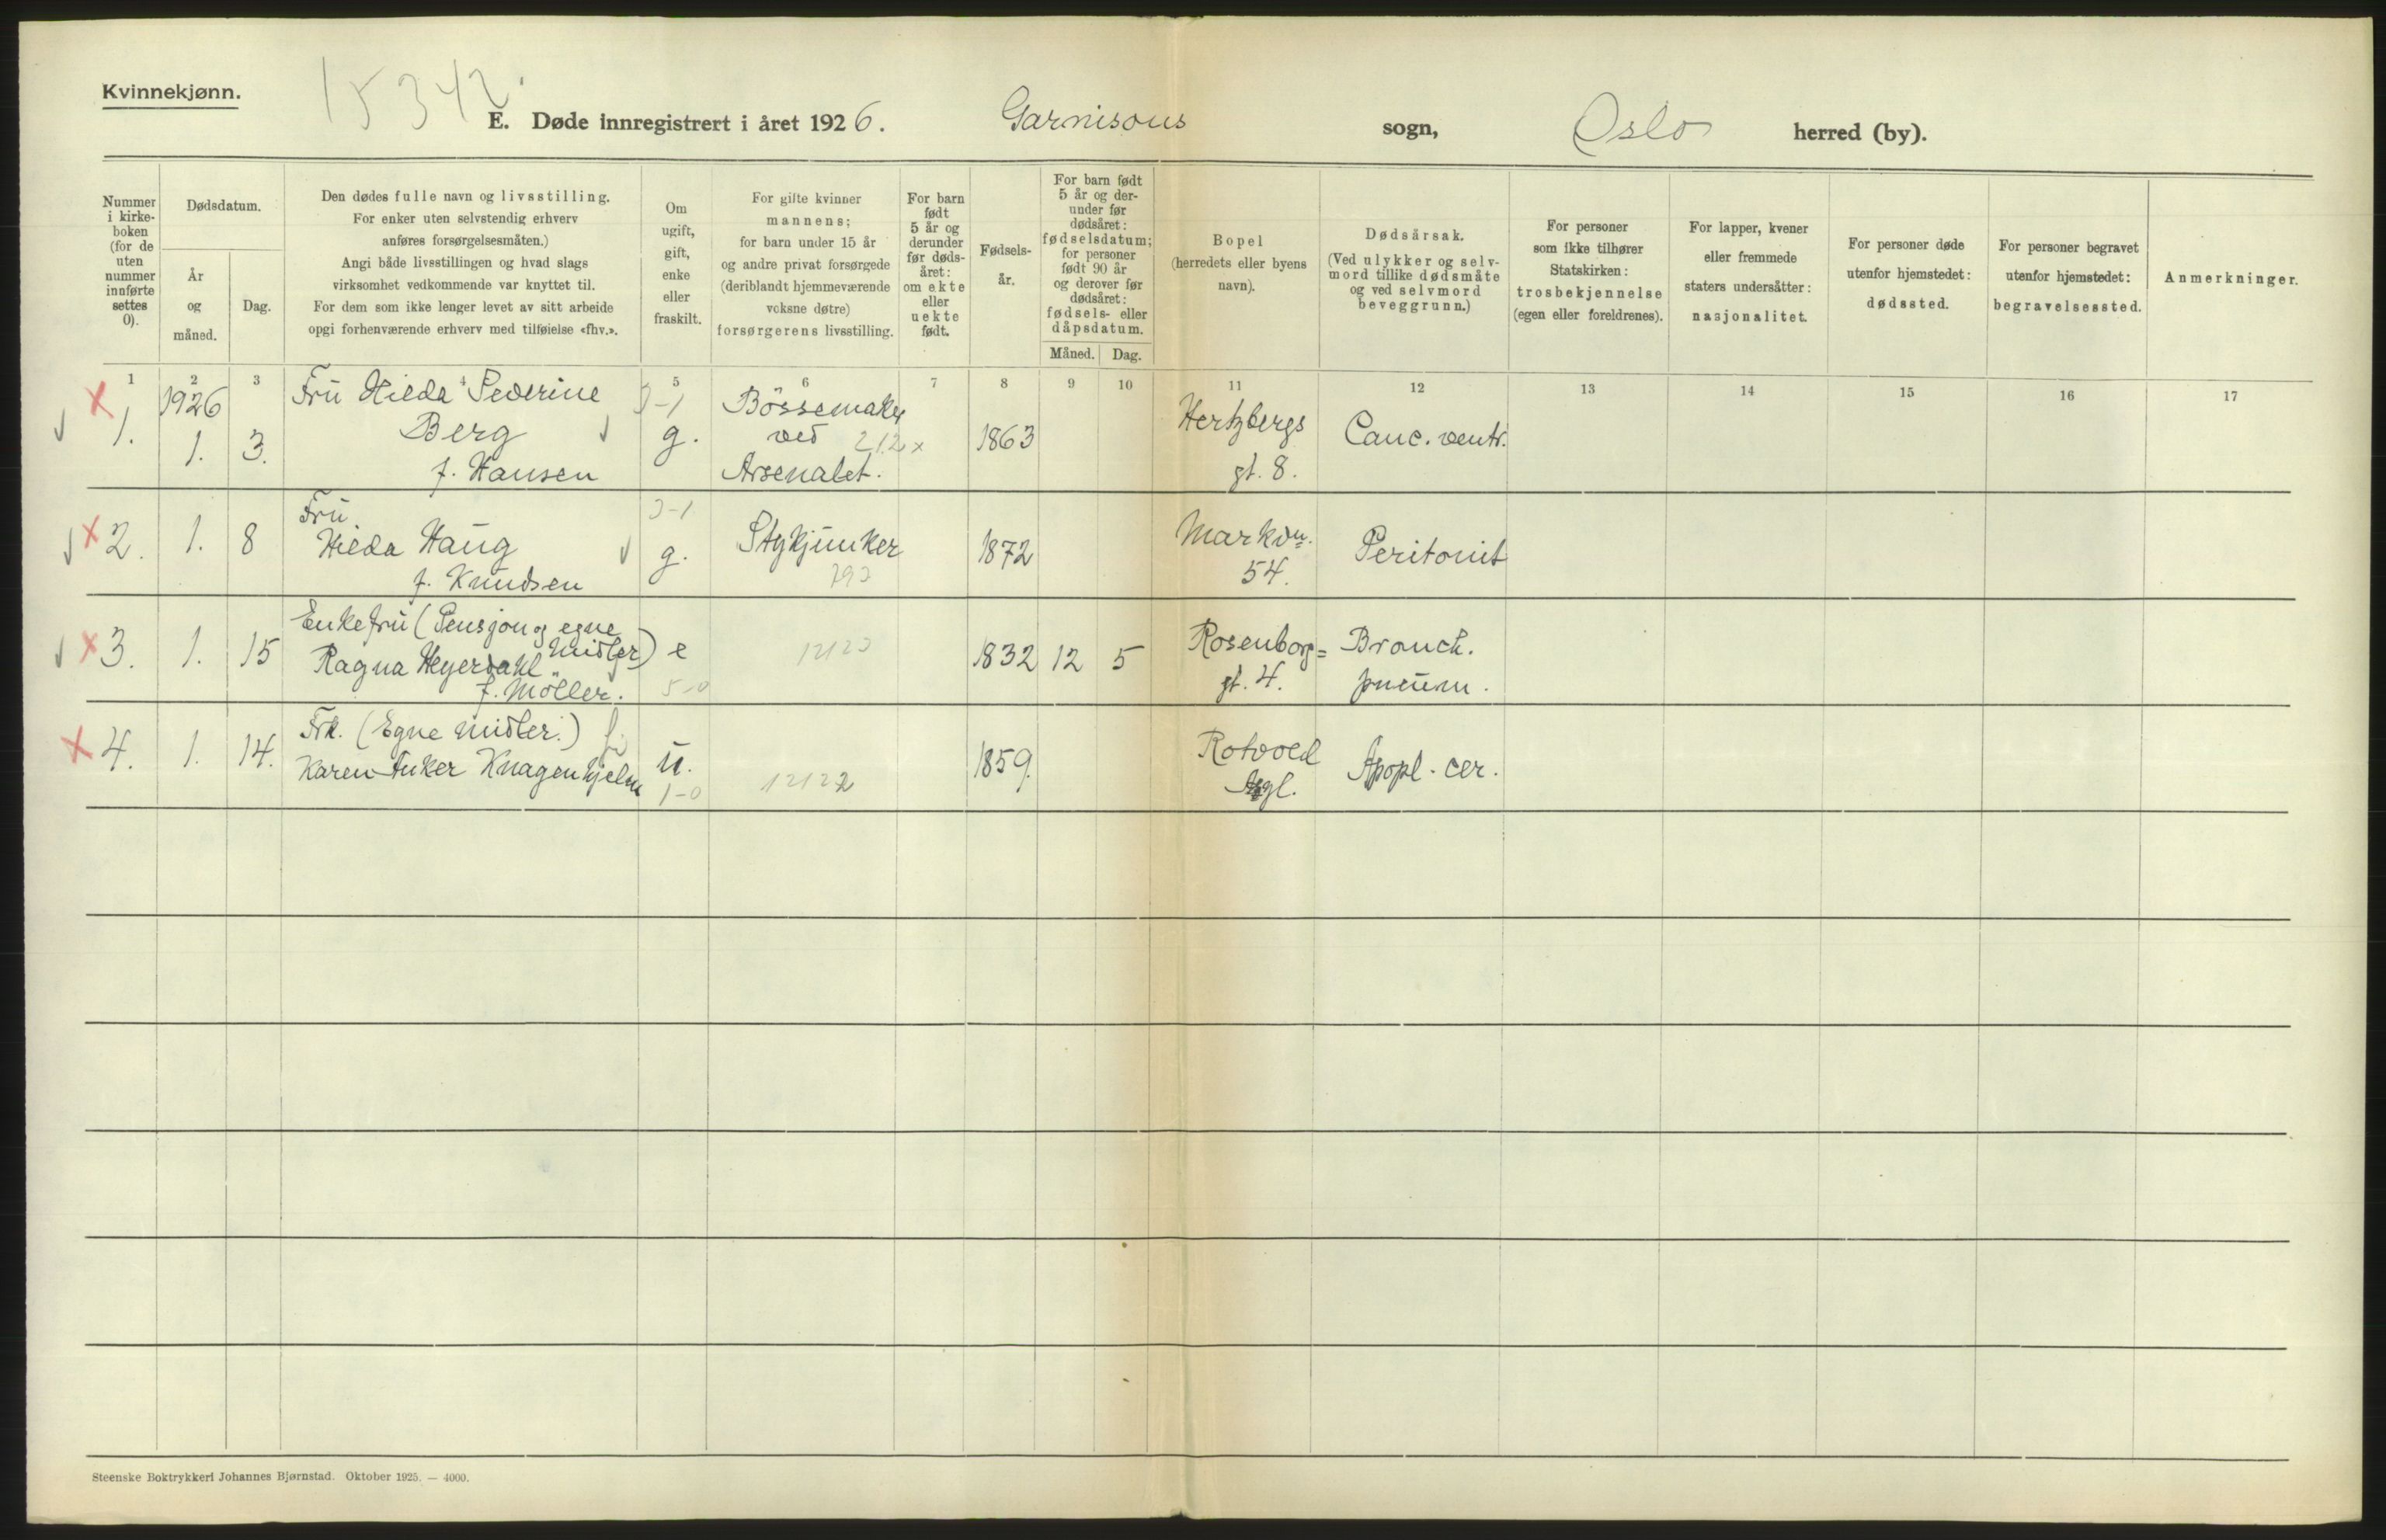 Kvinnekjønn.
15342.
E. Døde innregistrert i året 1926. Garnisons sogn, Oslo herred (by).
Nummer i kirke-boken (for de uten nummer innførte settes 0).
Dødsdatum.
År og måned.
Dag.
Den dødes fulle navn og livsstilling.
For enker uten selvstendig erhverv
anføres forsørgelsesmåten.)
Angi både livsstillingen og hvad slags
virksomhet vedkommende var knyttet til.
For dem som ikke lenger levet av sitt arbeide
opgi forhenværende erhverv med tilføielse «fhv.».
Om
ugift,
gift,
enke
eller
fraskilt.
For gifte kvinner
mannens;
for barn under 15 år
og andre privat forsørgede
(deriblandt hjemmeværende
voksne døtre)
forsørgerens livsstilling.
For barn
født
5 år og
derunder
før døds-
året:
om ekte
eller
uekte
født.
Fødsels-
år.
For barn født
5 år og der-
under før
dødsåret:
fødselsdatum;
for personer
født 90 år
og derover før
dødsåret:
fødsels- eller
dåpsdatum.
Måned. Dag.
Bopel
(herredets eller byens
navn).
Dødsårsak.
(Ved ulykker og selv-
mord tillike dødsmåte
og ved selvmord
beveggrunn.)
For personer
som ikke tilhører
Statskirken:
trosbekjennelse
(egen eller foreldrenes).
For lapper, kvener
eller fremmede
staters undersåtter:
nasjonalitet.
For personer døde
utenfor hjemstedet:
dødssted.
For personer begravet
utenfor hjemstedet:
begravelsessted.
Anmerkninger.
1 2 3 4 5 6 7 8 9 10 11 12 13 14 15 16 17
1. 1926 1. 3. Fru Hilda Pederine
Berg
f. Hansen
g.
Bössemaker
ved 212 x
Arsenalet.
1863
Hertzbergs
gt. 8.
Canc. ventr.
2. 1. 8 Fru
Hilda Haug
f. Knudsen
g.
Stykjunker
1872
Markvn.
54.
Peritonit
3. 1. 15 Enkefru (Pensjon og egne
midler)
Ragna Heyerdahl
f. Möller.
e
5-0
1832 12 5
Rosenborg=
gt. 4.
Bronch.
pneum.
4. 1. 14. Frk. (Egne midler.)
Karen Anker Knagenhjelm
u.
1-0
12122
1859.
Rotvold
Asyl.
Apopl. cer.
Steenske Boktrykkeri Johannes Bjørnstad. Oktober 1925. — 4000.